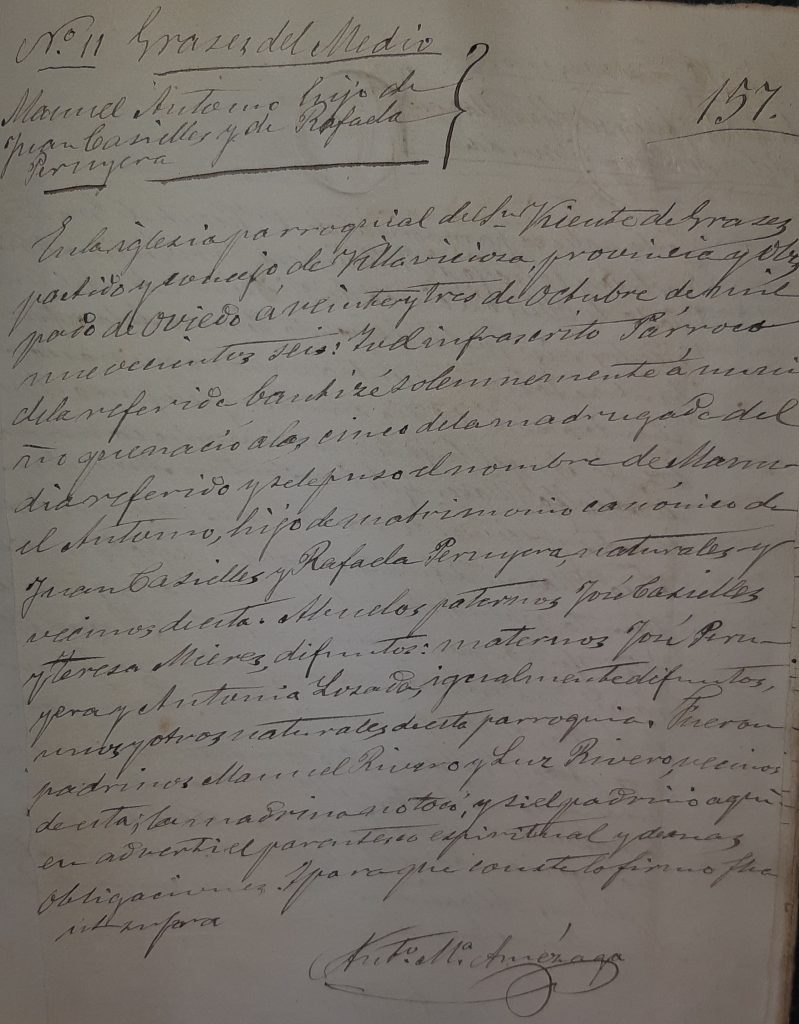 Nº 11 Grases del Medio
Manuel Antonio hijo de
Juan Casielles y de Rafaela
Peruyera
157.
En la iglesia parroquial de Sn Vicente de Grases
partido y concejo de Villaviciosa, provincia y Obis
pado de Oviedo á veinte y tres de Octubre de mil
nuevecientos seis: Yo el infrascrito Párroco
de la referida bautizé solemnemente á un ni
ño que nació a las cinco de la madrugada del
dia referido y se le puso el nombre de Manu-
el Antonio, hijo de matrimonio canónico de
Juan Casielles y Rafaela Peruyera, naturales y
vecinos de esta. Abuelos paternos José Casielles
y Teresa Mieres, difuntos: maternos José Peru-
yera y Antonia Lozada, igualmente difuntos,
unos y otros naturales de esta parroquia. Fueron
padrinos Manuel Rivero y Luz Rivero, vecinos
de esta; la madrina no tocó, y si el padrino a qui-
en advertí el parentesco espiritual y demas
obligaciones. Y para que conste lo firmo fha
ut supra
Anto. Ma. Amézaga